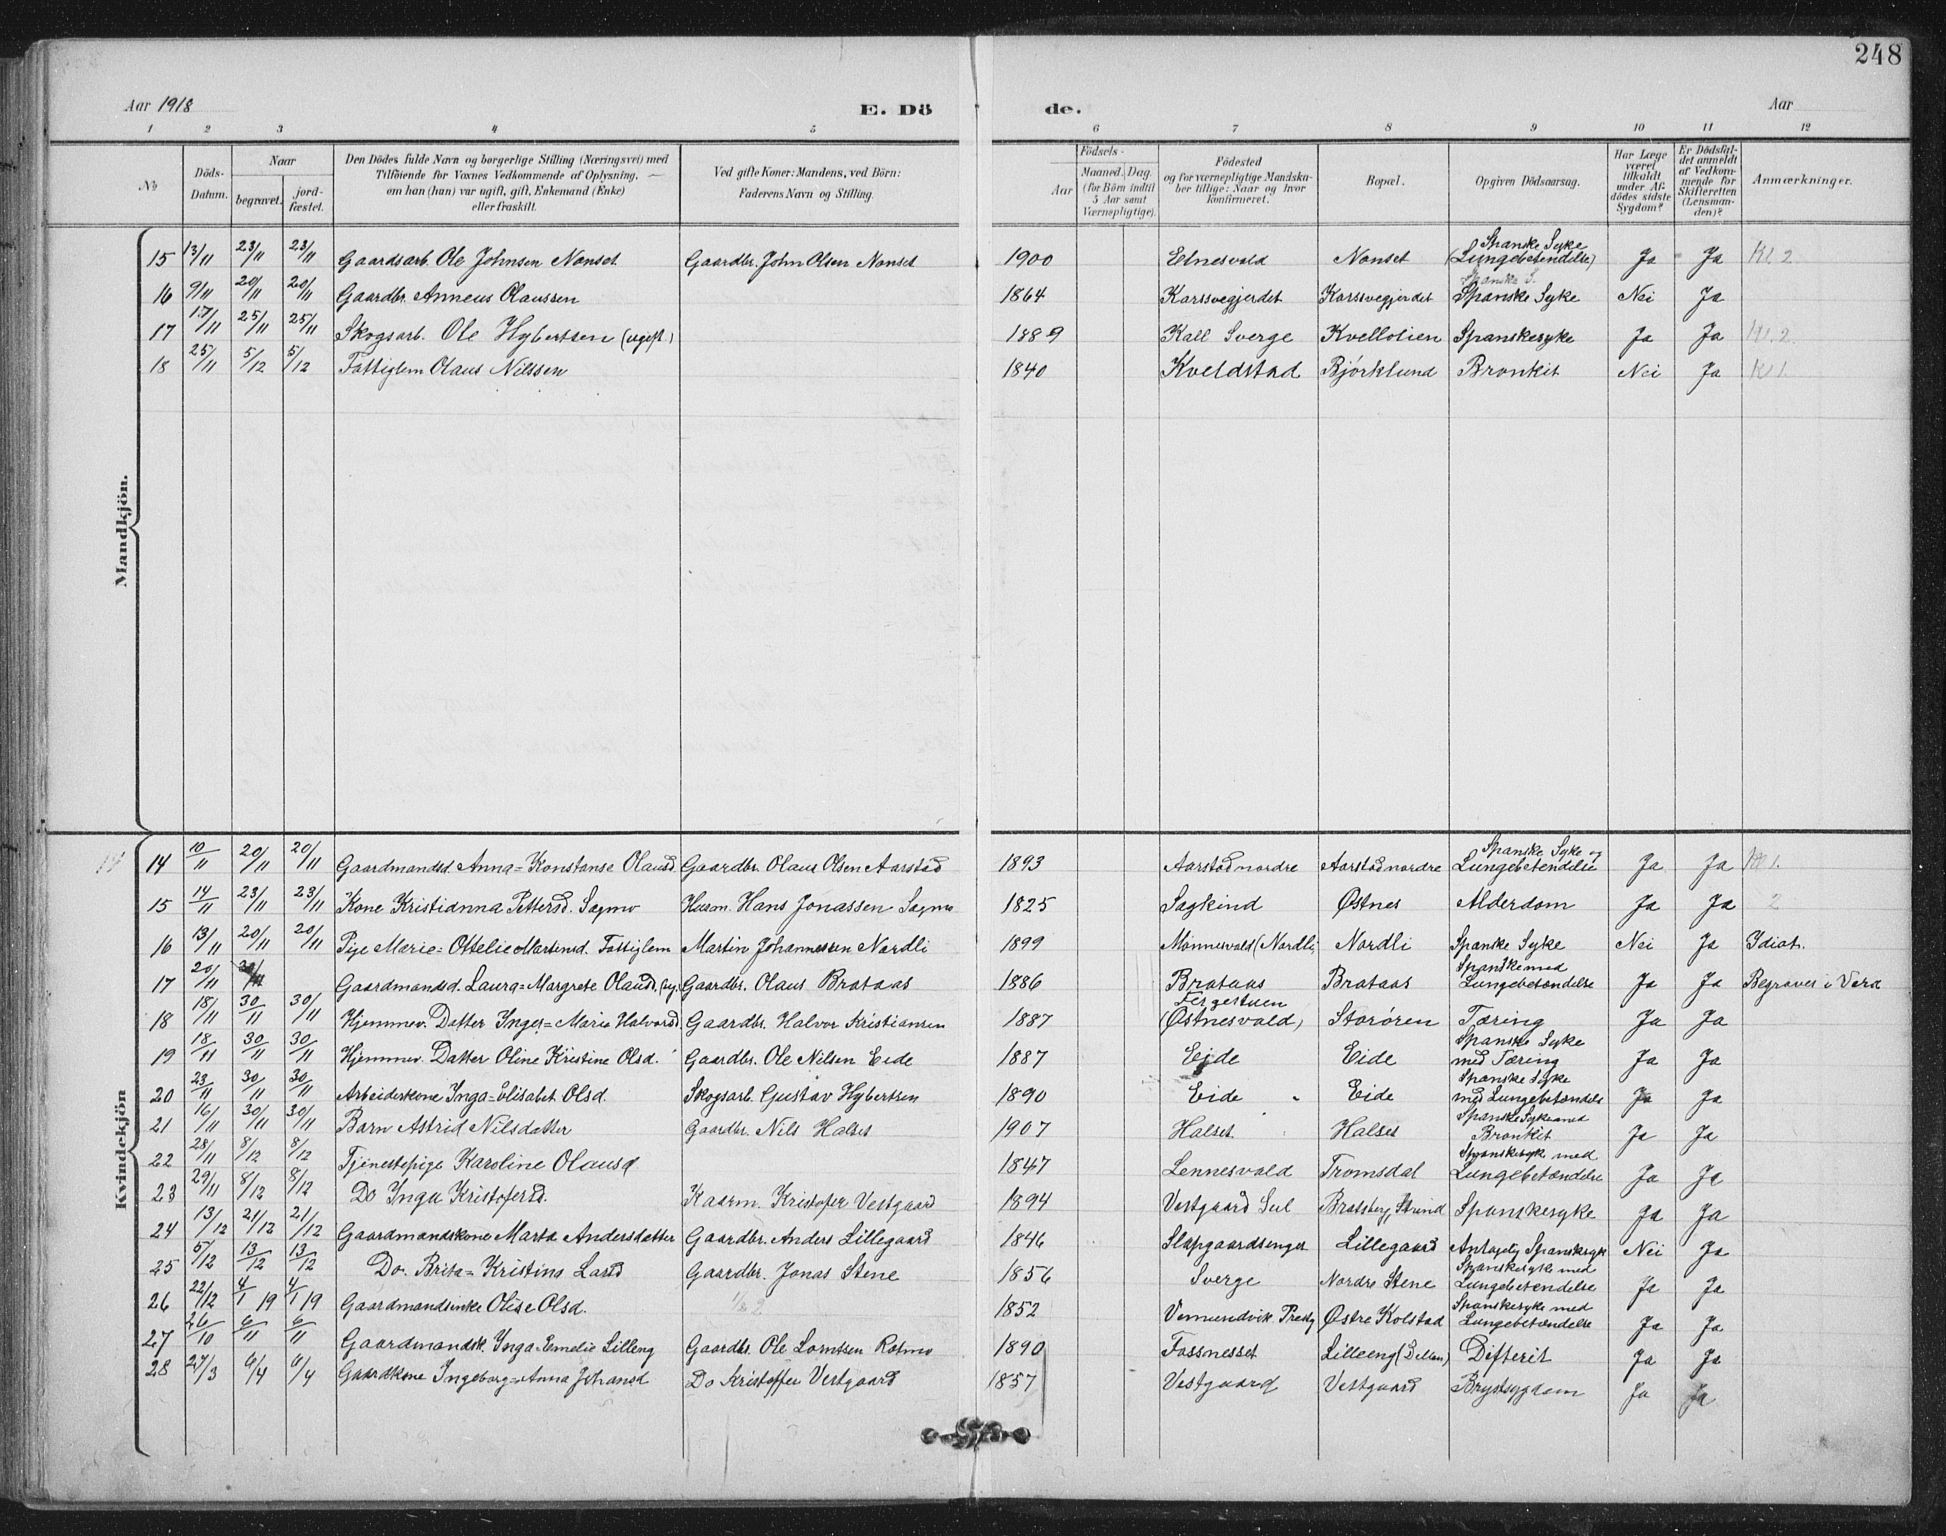 248
Aar 1918 E. Dö de. Aar
1 2 3 4 5 6 7 8 9 10 11 12
No Döds-Datum. Naar begravet. jordfæstet. Den Dödes fulde Navn og borgerlige Stilling (Næringsvei) med Tilföiende for Voxnes Vedkommende af Oplysning, om han (hun) var ugift, gift, Enkemand (Enke) eller fraskilt. Ved gifte Koner: Mandens, ved Börn: Faderens Navn og Stilling. Födsels- Aar Maaned. Dag. (for Börn indtil 5 Aar samt Værnepligtige). Födested og for værnepligtige Mandskaber tillige: Naar og hvor konfirmeret. Bopæl. Opgiven Dödsaarsag. Har Læge været tilkaldt under Afdödes sidste Sygdom? Er Dödsfaldet anmeldt af Vedkommende for Skifteretten (Lensmanden)? Anmærkninger.
Mandkjön.
15 13/11 23/11 23/11 Gaardsarb. Ole Johnsen Nonset Gaardbr. John Olsen Nonset 1900 Elnesvald Nonset Spanske Syke (Lungebetendelse) Ja Ja Kl 2
16 9/11 20/11 20/11 Gaardbr. Anneus Olaussen 1864 Karsvegjerdet Karsvegjerdet Spanske S. Spanske Syke Nei Ja
17 17/11 25/11 25/11 Skogsarb. Ole Hybertsen (ugift.) 1889 Kall Sverge Kvellolien Spanskesyke Ja Ja Kl. 2.
18 25/11 5/12 5/12 Fattiglem Olaus Nilssen 1840 Kveldstad Björklund Bronkit Nei Ja Kl 1.
Kvindekjön
14 14 10/11 20/11 20/11 Gaardmandsd. Anna=Konstanse Olausd. Gaardbr. Olaus Olsen Aarstad 1893 Aarstadnordre Aarstadnordre Spanske Syke og Lungebetendelse Ja Ja Kl 1.
15 14/11 23/11 23/11 Kone Kristianna Pettersd. Sagmo Husm. Hans Jonassen Sagmo 1825 Sagkind Østnes Alderdom Ja Ja 2
16 13/11 20/11 20/11 Pige Marie=Ottelie Martinsd. Fattiglem Martin Johannessen Nordli 1899 Mönnesvald (Nordli) Nordli Spanske Syke Nei Ja Idiot.
17 20/11 Gaardmandsd. Laura=Margrete Olausd. (ug. Gaardbr. Olaus Brataas 1886 Brataas Brataas Spanske med Lungebetændelse Ja Ja Begraves i Vera
18 18/11 30/11 30/11 Hjemmev. Datter Inger=Marie Halvorsd. Gaardbr. Halvor Kristiansen 1887 Fergestuen (Østnesvald) Storøren Tæring Ja Ja
19 18/11 30/11 30/11 Hjemmev. Datter Oline Kristine Olsd. Gaardbr. Ole Nilsen Eide 1887 Eide Eide Spanske Syke med Tæring Ja Ja
20 23/11 30/11 30/11 Arbeiderkone Inga=Elisabet Olsd. Skogsarb. Gustav Hybertsen 1890 Eide Eide Spanske Syke med Lungebetændels Ja Ja
21 16/11 30/11 30/11 Barn Astrid Nilsdatter Gaardbr. Nils Halset 1907 Halset Halset Spanske Syke med Bronkit Ja Ja
22 28/11 8/12 8/12 Tjenestepige Karoline Olausd 1847 Lennesvald Tromsdal Spanskesyk med Lungebetændelse Ja Ja
23 29/11 8/12 8/12 Do Inga Kristofersd. Kaarm. Kristofer Vestgaard 1894 Vestgaard Sul Bratsberg, Strind Spanskesyke Ja Ja
24 13/12 21/12 21/12 Gaardmandskone Marta Andersdatter Gaardbr. Anders Lillegaard 1846 Slapgaardsenget Lillegaard Antagelig Spanskesyk Nei Ja
25 5/12 13/12 13/12 Do. Brita=Kristina Larsd Gaardbr. Jonas Stene 1856 Sverge Nordre Stene Spanskesyke med Lungebetendelse Ja Ja
26 22/12 4/1 19 4/1 19 Gaardmandsenke Olise Olsd. 1852 Vemundvik Prestg Østre Kolstad Spanskesyke med Lungebetændelse Ja Ja
27 26/10 6/11 6/11 Gaardmandsk. Inga Emelie Lilleng Gaardbr. Ole Lorntsen Rotmo 1890 Fossnesset Lilleeng Difterit Ja Ja
28 27/3 6/4 6/4 Gaardkone Ingeborg=Anna Johansd Do Kristoffer Vestgaard 1857 Vestgaard Vestgaard Brystsygdom Ja Ja